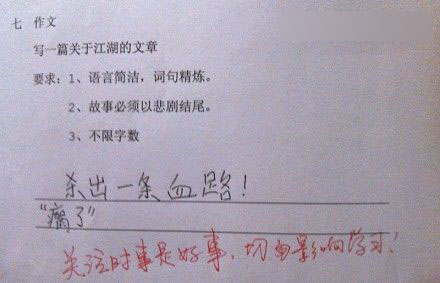 七 作文
写一篇关于江湖的文章
要求：1、语言简洁，词句精炼。
2、故事必须以悲剧结尾。
3、不限字数
杀出一条血路！
“瘸了”
关注时事是好事，切勿影响学习！